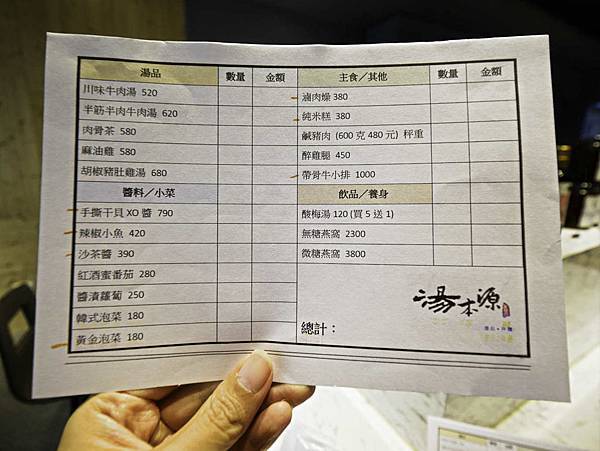 湯品 數量 金額
川味牛肉湯 520
半筋半肉牛肉湯 620
肉骨茶 580
麻油雞 580
胡椒豬肚雞湯 680
醬料／小菜
手撕干貝 XO 醬 790
辣椒小魚 420
沙茶醬 390
紅酒蜜番茄 280
醬漬蘿蔔 250
韓式泡菜 180
黃金泡菜 180
主食／其他 數量 金額
滷肉燥 380
純米糕 380
鹹豬肉 (600 克 480 元) 秤重
醉雞腿 450
帶骨牛小排 1000
飲品／養身
酸梅湯 120 (買 5 送 1)
無糖燕窩 2300
微糖燕窩 3800
總計：
湯本源